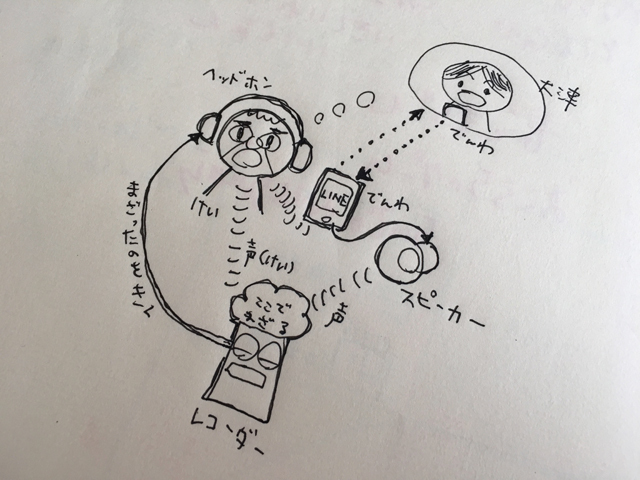 ヘッドホン
大津
でんわ
LINE
でんわ
けい
まざったのをきく
声(けい)
スピーカー
ここで
まざる
声
レコーダー